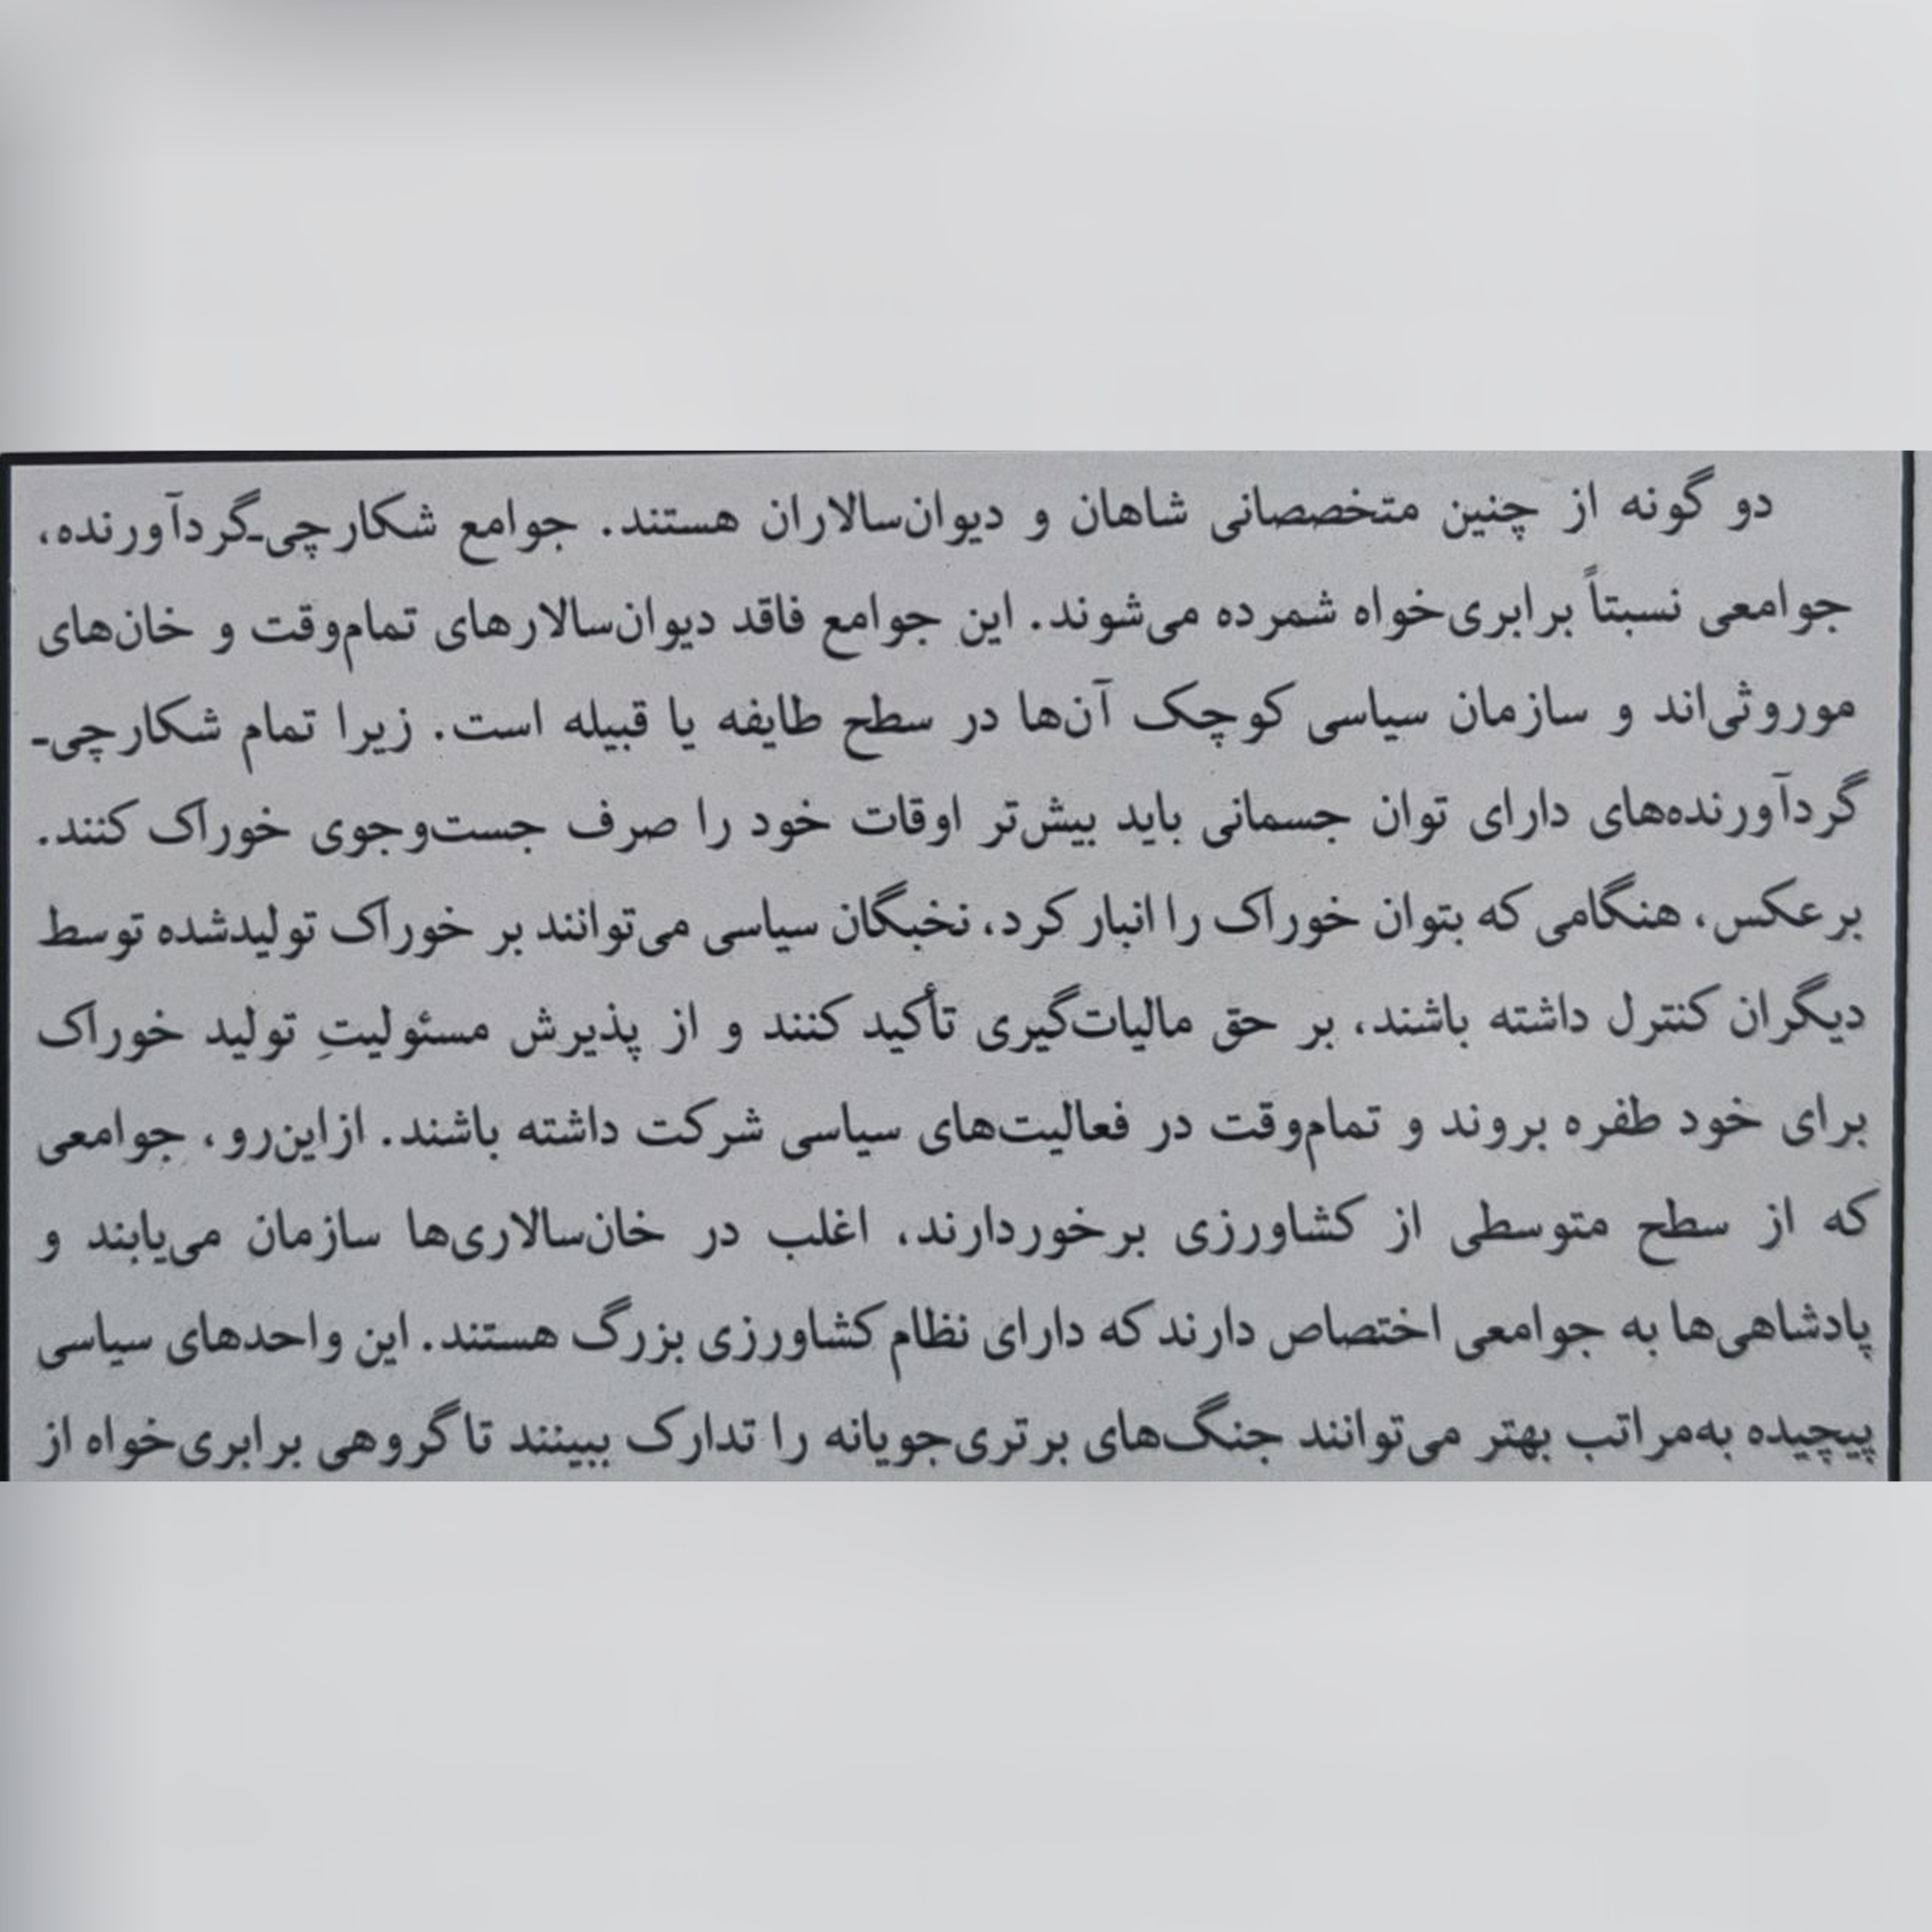 دو گونه از چنین متخصصانی شاهان و دیوان‌سالاران هستند. جوامع شکارچی‌ـگردآورنده،
جوامعی نسبتاً برابری‌خواه شمرده می‌شوند. این جوامع فاقد دیوان‌سالارهای تمام‌وقت و خان‌های
موروثی‌اند و سازمان سیاسی کوچک آن‌ها در سطح طایفه یا قبیله است. زیرا تمام شکارچی‌ـ
گردآورنده‌های دارای توان جسمانی باید بیش‌تر اوقات خود را صرف جست‌وجوی خوراک کنند.
برعکس، هنگامی که بتوان خوراک را انبار کرد، نخبگان سیاسی می‌توانند بر خوراک تولیدشده توسط
دیگران کنترل داشته باشند، بر حق مالیات‌گیری تأکید کنند و از پذیرش مسئولیتِ تولید خوراک
برای خود طفره بروند و تمام‌وقت در فعالیت‌های سیاسی شرکت داشته باشند. ازاین‌رو، جوامعی
که از سطح متوسطی از کشاورزی برخوردارند، اغلب در خان‌سالاری‌ها سازمان می‌یابند و
پادشاهی‌ها به جوامعی اختصاص دارند که دارای نظام کشاورزی بزرگ هستند. این واحدهای سیاسی
پیچیده به‌مراتب بهتر می‌توانند جنگ‌های برتری‌جویانه را تدارک ببینند تا گروهی برابری‌خواه از